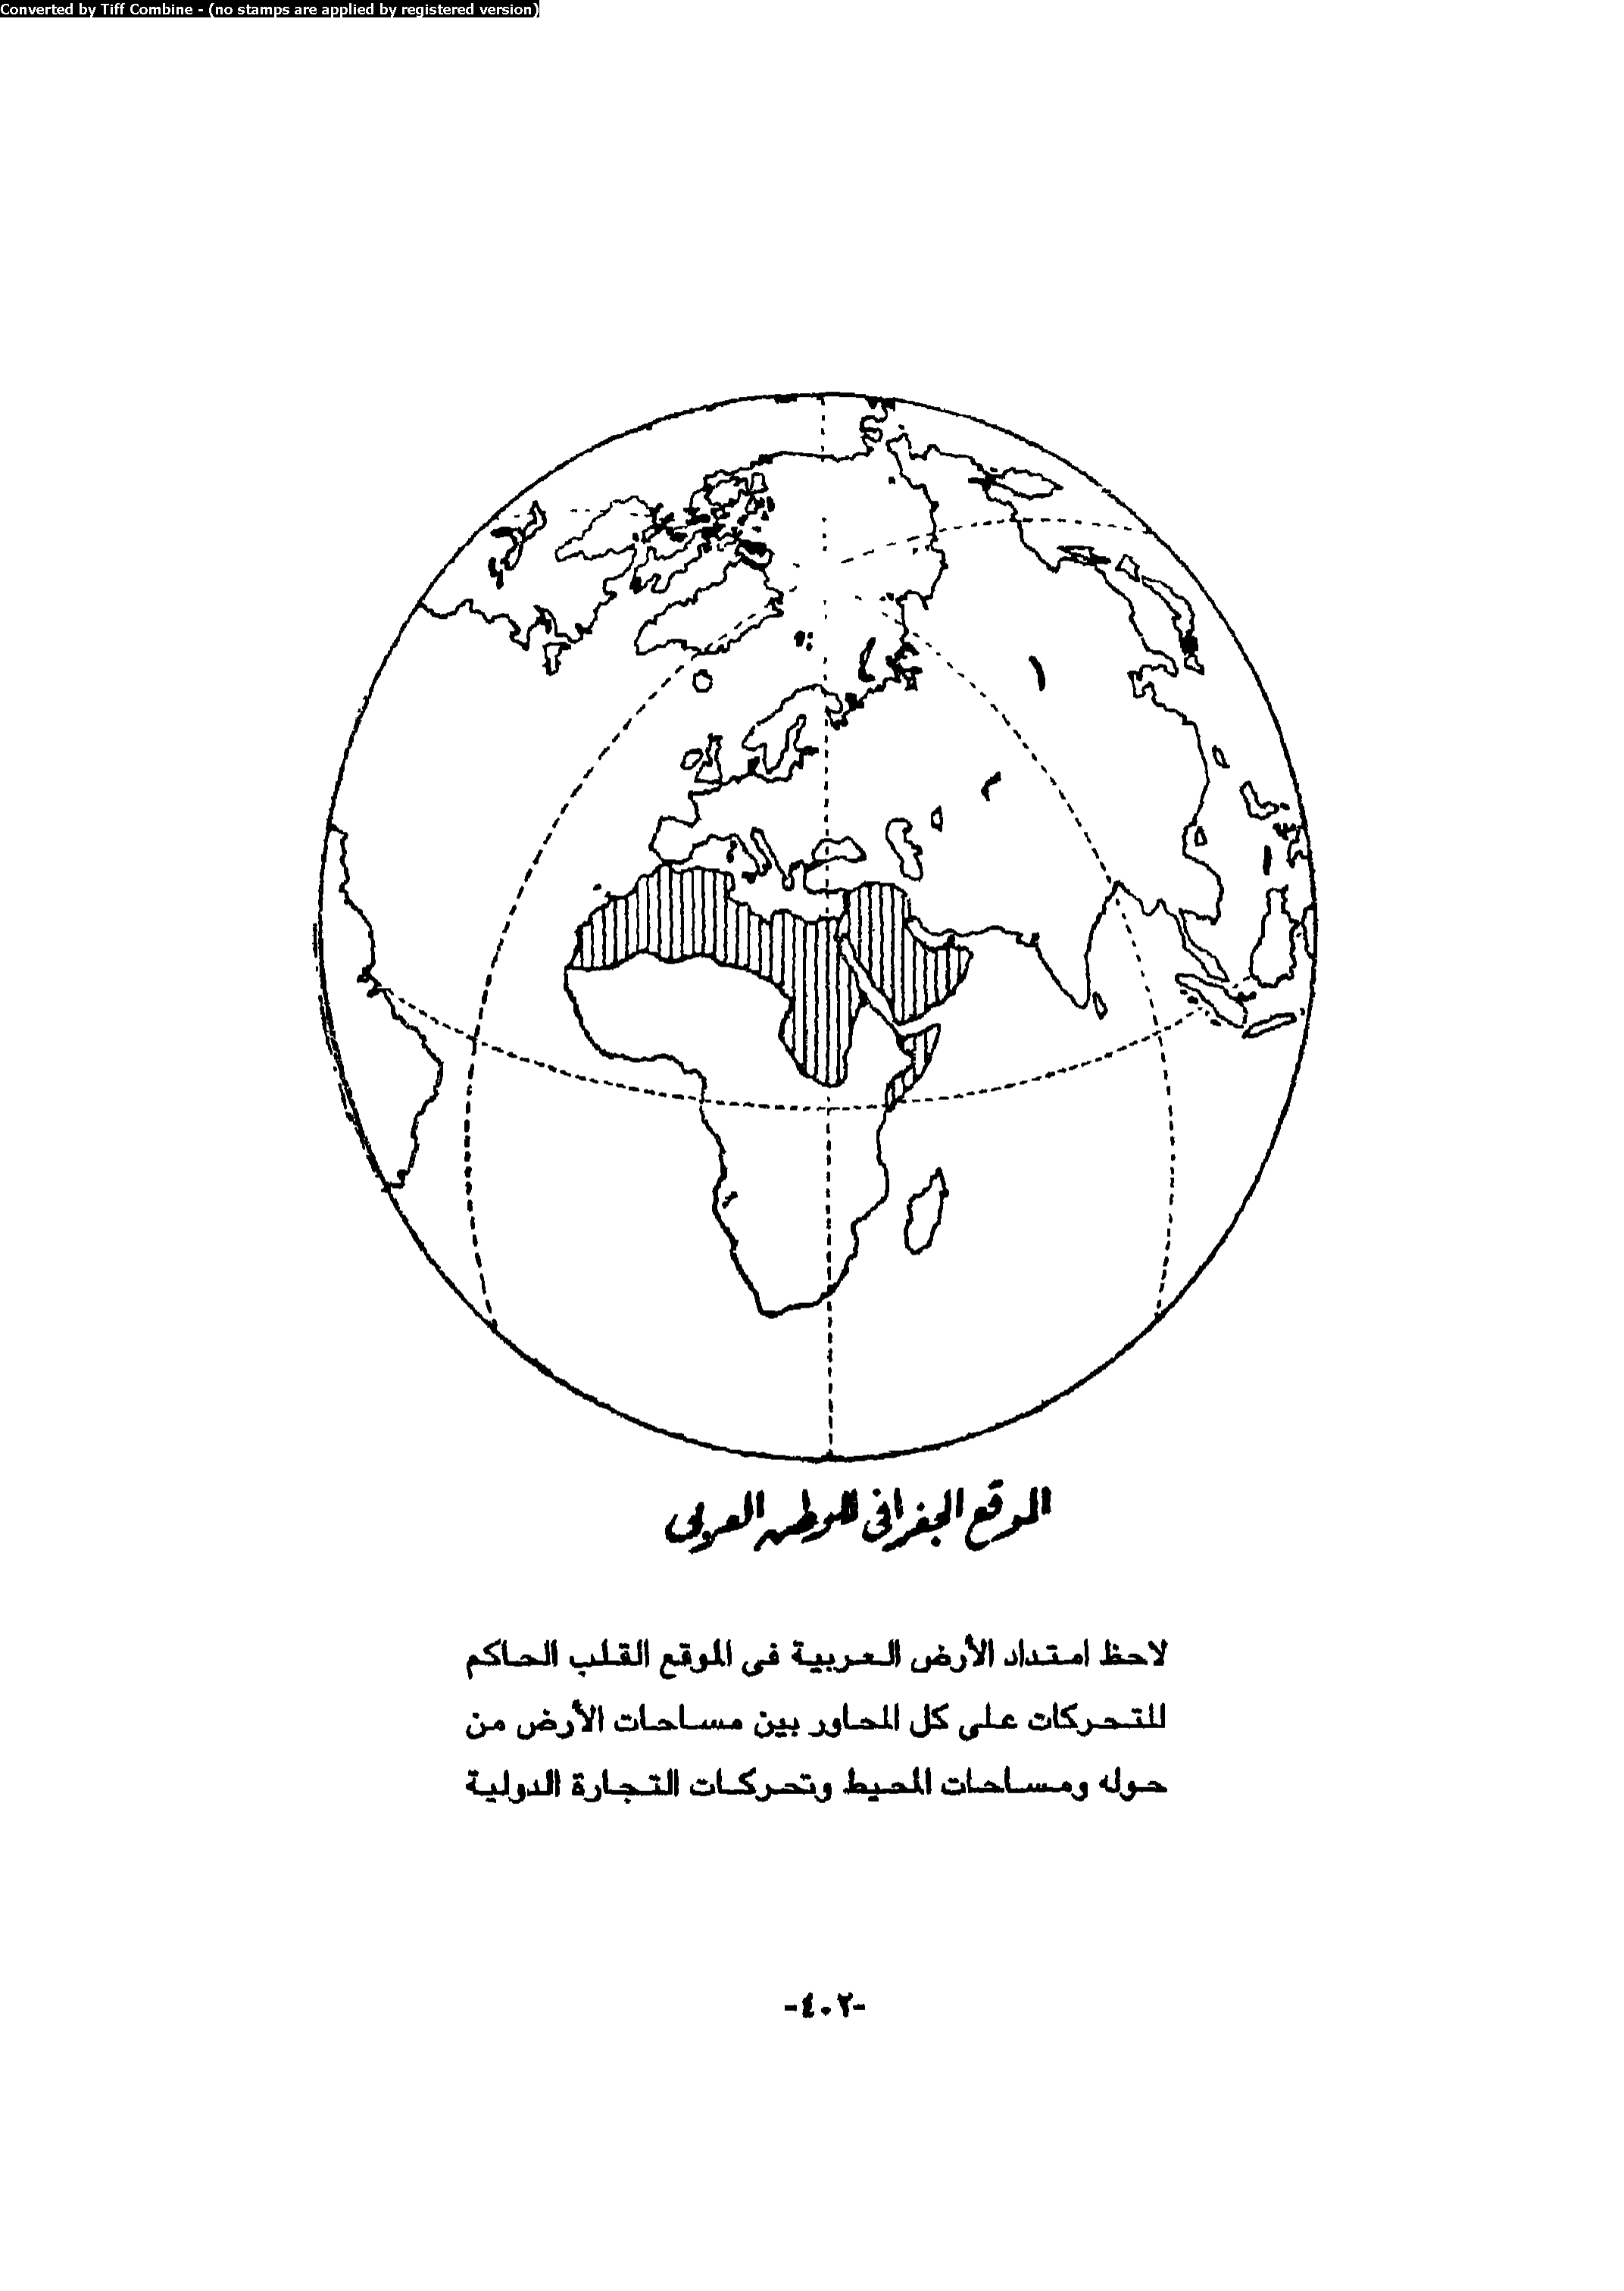 Converted by Tiff Combine - (no stamps are applied by registered version)
الموقع الجغرافى للوطن العربى
لاحظ امتداد الأرض العربية فى الموقع القلب الحاكم
للتحركات على كل المحاور بين مساحات الأرض من
حوله ومساحات المحيط وتحركات التجارة الدولية
-٤٠٢-